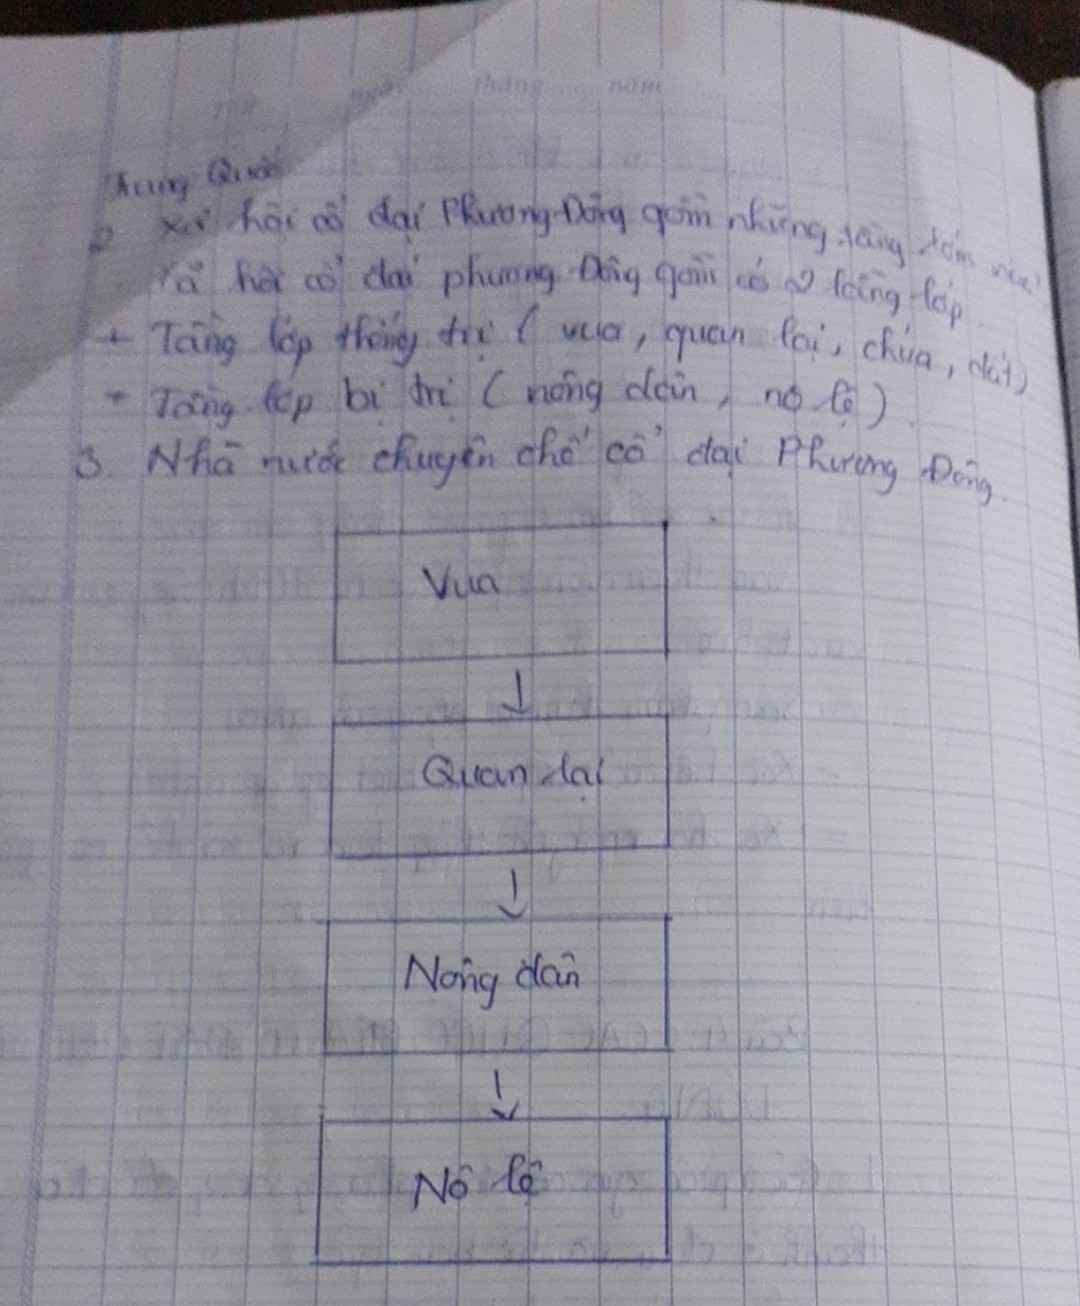 tháng ... năm
Trung Quốc
2 Xã hội cổ đại Phương Đông gồm những tầng lớp nào?
Xã hội cổ đại phương Đông gồm có 2 tầng lớp
+ Tầng lớp thống trị ( vua, quan lại, chúa, đất)
+ Tầng lớp bị trị ( nông dân, nô lệ)
3. Nhà nước chuyên chế cổ đại Phương Đông.
Vua
Quan lại
Nông dân
Nô lệ